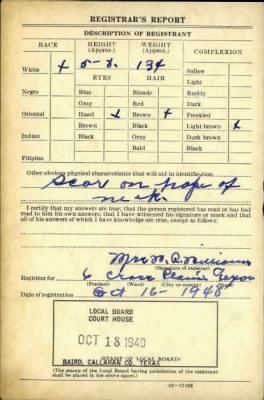 REGISTRAR'S REPORT
DESCRIPTION OF REGISTRANT
RACE HEIGHT (Approx.) WEIGHT (Approx.) COMPLEXION
White x 5-8. 134 Sallow
EYES HAIR Light
Negro Blue Blonde Ruddy
Gray Red Dark
Oriental Hazel x Brown x Freckled
Brown Black Light brown x
Indian Black Gray Dark brown
Bald Black
Filipino
Other obvious physical characteristics that will aid in identification
Scar on nape of
neck
I certify that my answers are true; that the person registered has read or has had
read to him his own answers; that I have witnessed his signature or mark and that
all of his answers of which I have knowledge are true, except as follows:
Mrs
(Signature of registrar)
Registrar for 6 Cross Plains Texas
(Precinct) (Ward) (City or county) (State)
Date of registration Oct 16-1940
LOCAL BOARD
COURT HOUSE
OCT 18 1940
(STAMP OF LOCAL BOARD)
BAIRD, CALLAHAN CO, TEXAS
(The stamp of the Local Board having jurisdiction of the registrant
shall be placed in the above space.)